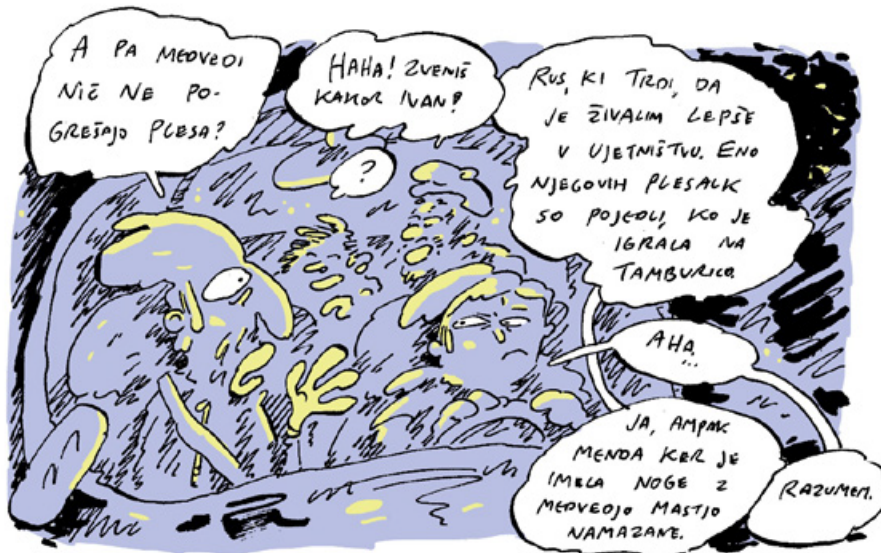 A PA MEDVEDI
NIČ NE PO-
GREŠAJO PLESA?
HAHA! ZVENIŠ
KAKOR IVAN!
?
RUS, KI TRDI, DA
JE ŽIVALIM LEPŠE
V UJETNIŠTVU. ENO
NJEGOVIH PLESALK
SO POJEDLI, KO JE
IGRALA NA
TAMBURICO.
AHA...
JA, AMPAK
MENDA KER JE
IMELA NOGE Z
MEDVEDJO MASTJO
NAMAZANE.
RAZUMEM.